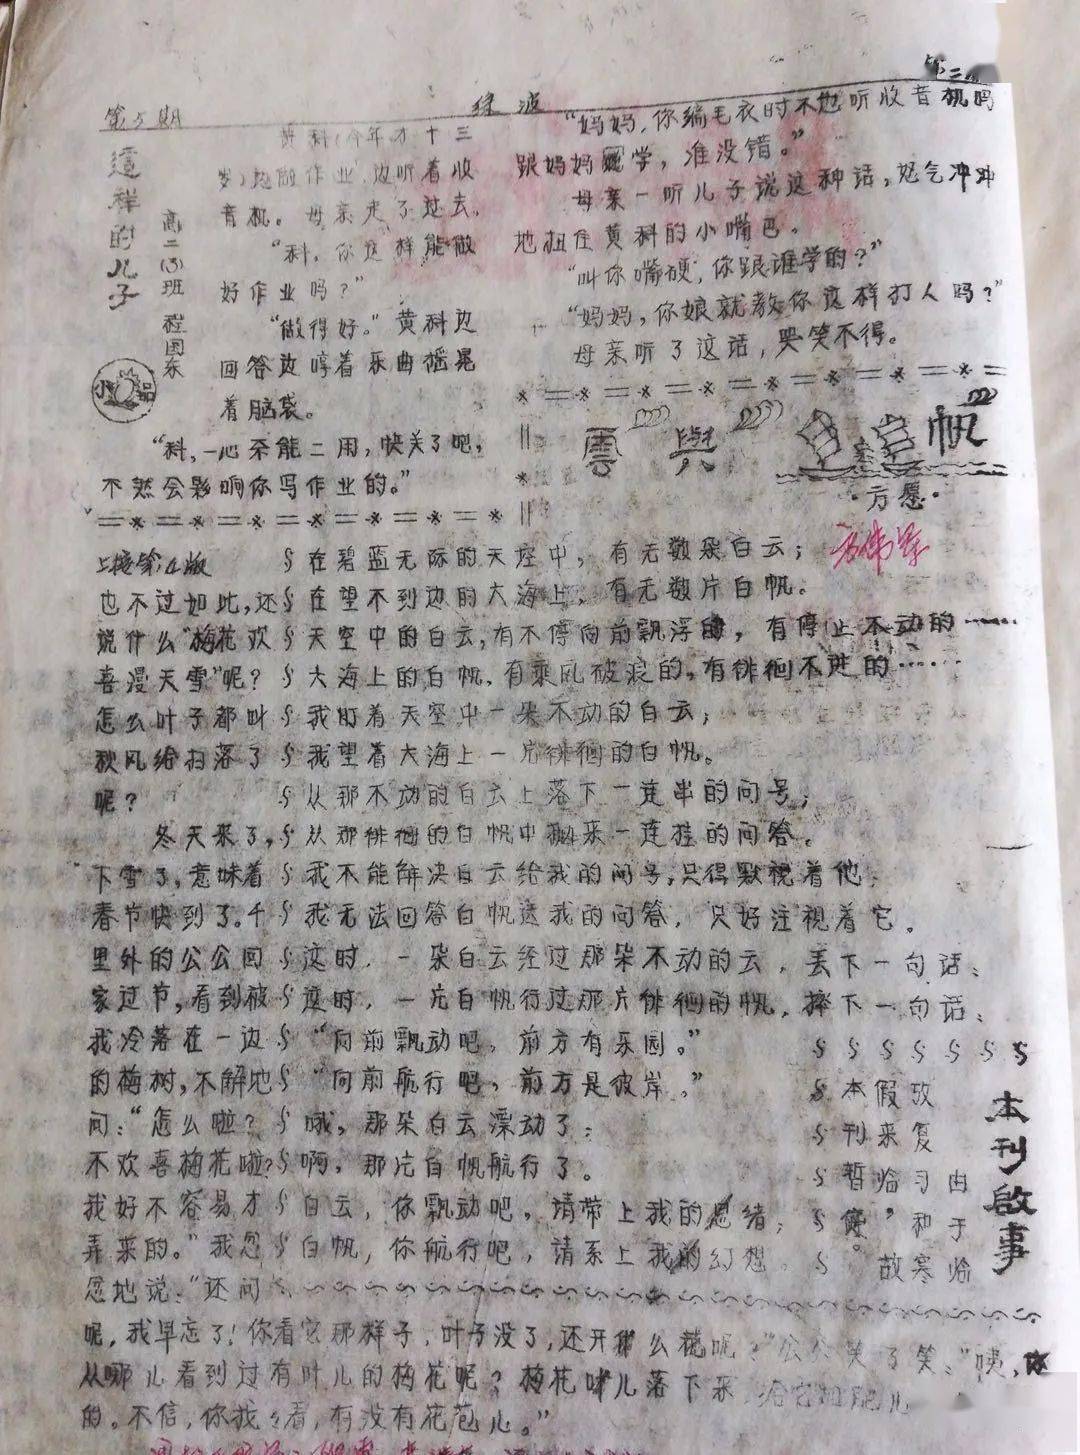 第5期
绿波
这样的儿子
高二(3)班 程国东
小品
黄科(今年才十三
岁)边做作业,边听着收
音机。母亲走了过去,
“科,你这样能做
好作业吗?”
“做得好。”黄科边
回答边哼着乐曲摇晃
着脑袋。
“科,一心不能二用,快关了吧,
不然会影响你写作业的。”
“妈妈,你编毛衣时不也听收音机吗
跟妈妈学,准没错。”
母亲一听儿子说这种话,怒气冲冲
地扭住黄科的小嘴巴。
“叫你嘴硬,你跟谁学的?”
“妈妈,你娘就教你这样打人吗?”
母亲听了这话,哭笑不得。
雲與帆
·方愿·
在碧蓝无际的天空中,有无数朵白云;
在望不到边的大海上,有无数片白帆。
天空中的白云,有不停向前飘浮的,有停止不动的……
大海上的白帆,有乘风破浪的,有徘徊不进的……
我盯着天空中一朵不动的白云;
我望着大海上一片徘徊的白帆。
从那不动的白云上落下一连串的问号;
从那徘徊的白帆中抛来一连挂的问答。
我不能解决白云给我的问号,只得默视着他;
我无法回答白帆送我的问答,只好注视着它。
这时,一朵白云经过那朵不动的云,丢下一句话:
这时,一片白帆行过那片徘徊的帆,摔下一句话:
“向前飘动吧,前方有乐园。”
“向前航行吧,前方是彼岸。”
哦,那朵白云漂动了;
啊,那片白帆航行了。
白云,你飘动吧,请带上我的思绪;
白帆,你航行吧,请系上我的幻想。
上接第4版
也不过如此,还
说什么“梅花欢
喜漫天雪”呢?
怎么叶子都叫
秋风给扫落了
呢?
冬天来了,
下雪了,意味着
春节快到了。千
里外的公公回
家过节,看到被
我冷落在一边
的梅树,不解地
问:“怎么啦?
不欢喜梅花啦?
我好不容易才
弄来的。”我忽
忽地说:“还问
呢,我早忘了!你看它那样子,叶子没了,还开什么花呢?”公公笑了笑:“咦,你
从哪儿看到过有叶儿的梅花呢?梅花叶儿落下来
的。不信,你找找看,有没有花苞儿。”
本刊啟事
由于临
习和寒
复临故
放来暂停。
假刊
本